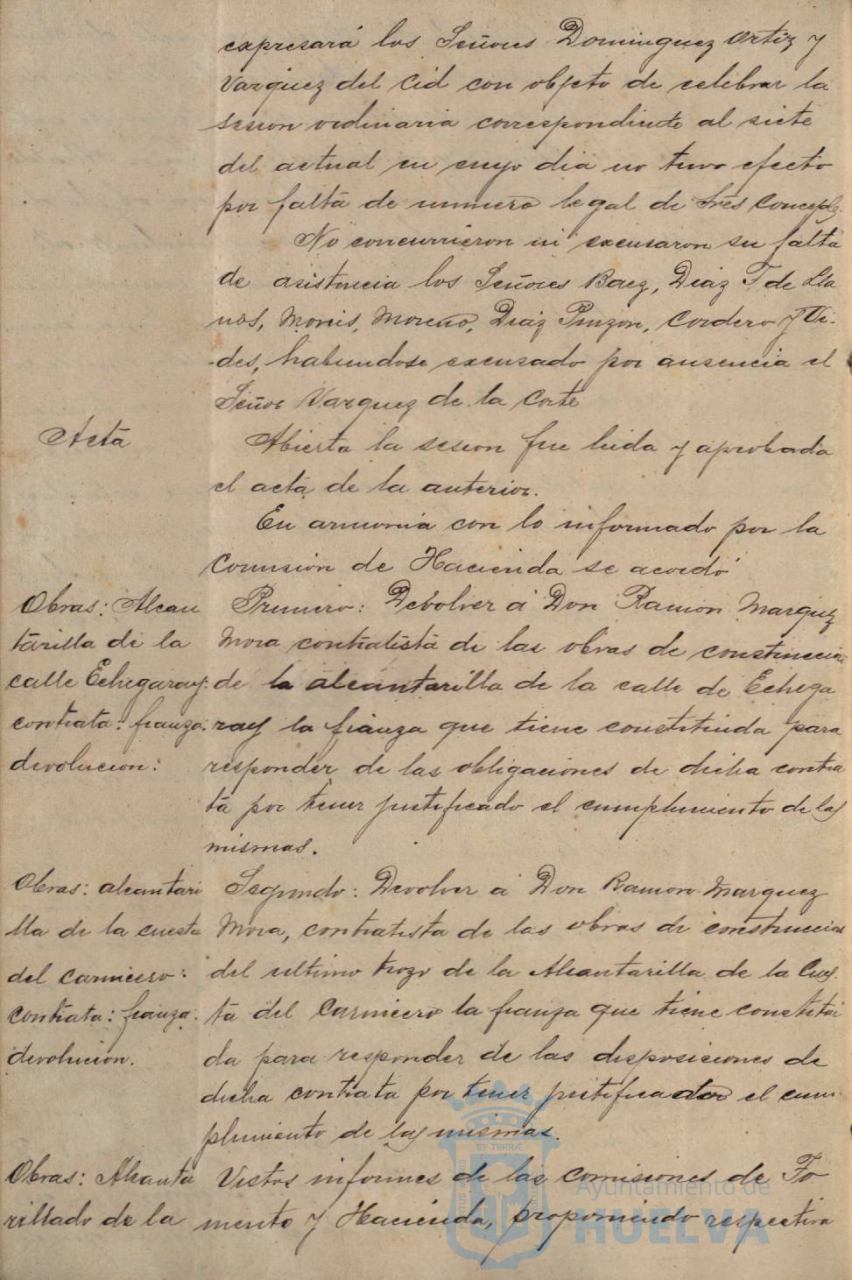 expresará los Señores Dominguez Ortiz y
Vazquez del Cid con objeto de celebrar la
sesion ordinaria correspondiente al siete
del actual en cuyo dia no tuvo efecto
por falta de numero legal de Sres Concejs.
No concurrieron ni excusaron su falta
de asistencia los Señores Baez, Diaz T de Lla
nos, Monis, Moreno, Diaz Pinzon, Cordero y Vi-
des, habiendose excusado por ausencia el
Señor Vazquez de la Corte
Acta
Abierta la sesion fue leida y aprobada
el acta de la anterior.
En armonia con lo informado por la
Comision de Hacienda se acordó
Obras: Alcan
tarilla de la
calle Echegaray:
contrata: fianza:
devolucion:
Primero: Debolver á Don Ramon Marquez
Mora contratista de las obras de construccion
de la alcantarilla de la calle de Echega
ray la fianza que tiene constituida para
responder de las obligaciones de dicha contra
ta por tener justificado el cumplimiento de las
mismas.
Obras: alcantari
lla de la cuesta
del carnicero:
contrata: fianza:
devolucion.
Segundo: Devolver á Don Ramon Marquez
Mora, contratista de las obras de construccion
del ultimo trozo de la Alcantarilla de la Cues
ta del Carnicero la fianza que tiene constitui
da para responder de las disposiciones de
dicha contrata por tener justificado el cum-
plimiento de las mismas.
Obras: Alcanta
rillado de la
Vistos informes de las comisiones de Fo
mento y Hacienda, proponiendo respectiva
Ayuntamiento de
HUELVA